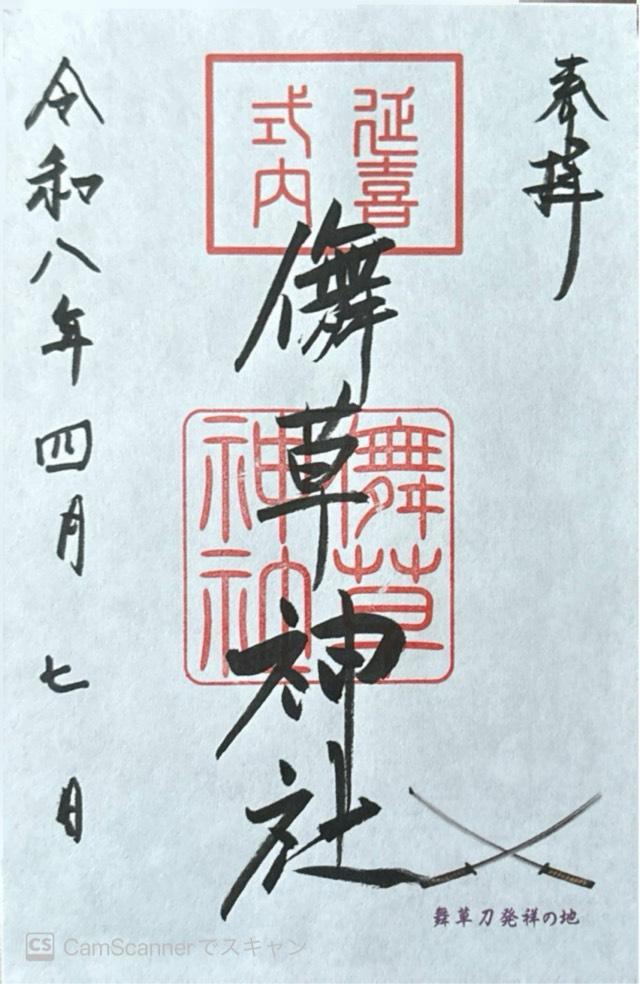 奉拝
延喜
式内
儛草神社
儛草
神社
令和八年四月七日
舞草刀発祥の地
CS CamScannerでスキャン